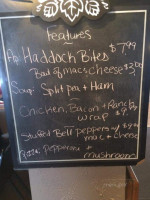 Features
Haddock Bites $7.99
Bowl of mac & cheese
Soup Split pea + Ham
Chicken, Bacon + Ranch
wrap
Stuffed Bell peppers w/
mac + cheese
Pizza pepperoni +
mushroom